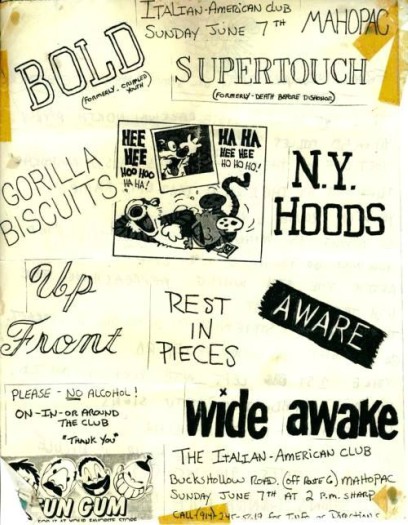 ITALIAN-AMERICAN CLUB
SUNDAY JUNE 7TH
MAHOPAC
BOLD
(FORMERLY - CRIPPLED YOUTH)
SUPERTOUCH
(FORMERLY - DEATH BEFORE DISHONOR)
HEE
HEE
HOO HOO
HA HA!
HA HA
HEE HEE
HO HO HO!
GORILLA
BISCUITS
N.Y.
HOODS
Up
Front
REST
IN
PIECES
AWARE
PLEASE - NO ALCOHOL!
ON-IN-OR AROUND
THE CLUB
"THANK YOU"
wide awake
THE ITALIAN-AMERICAN CLUB
BUCKSHOLLOW ROAD. (OFF ROUTE 6) MAHOPAC
SUNDAY JUNE 7TH AT 2 P.M. SHARP
FUN GUM
YOUR FAVORITE STORE
CALL (914) FOR INFO or Directions